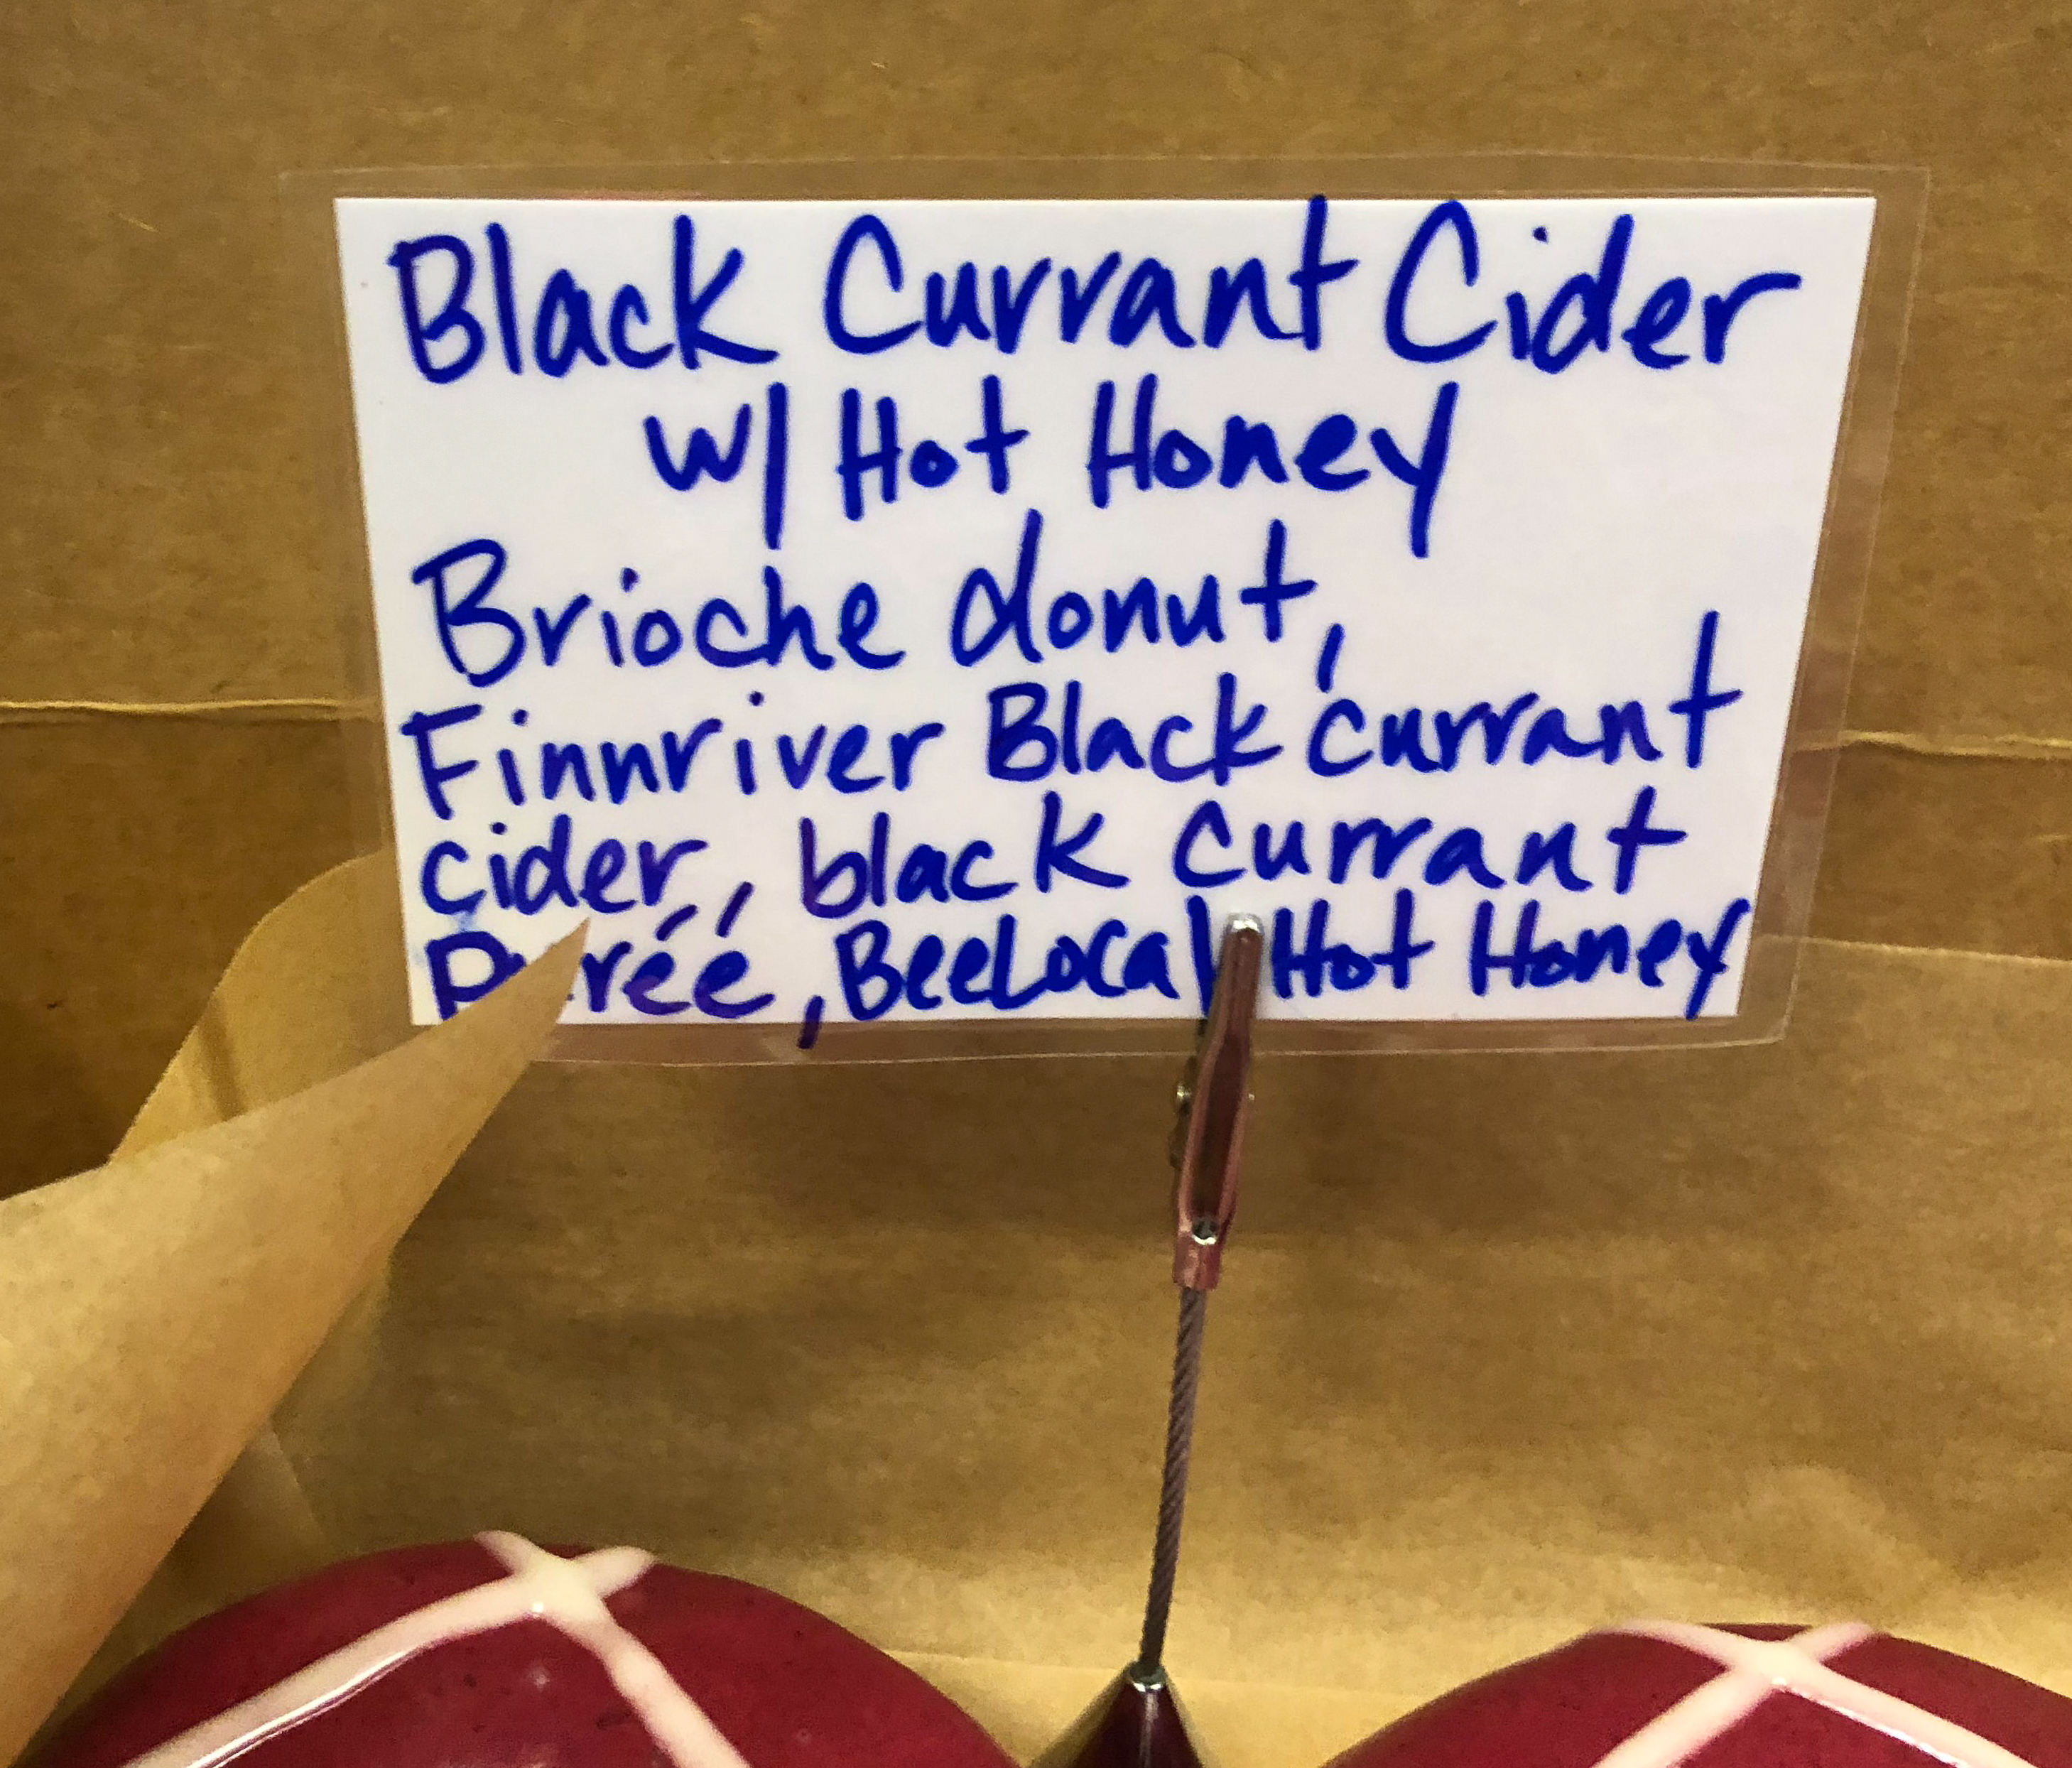 Black Currant Cider
w/ Hot Honey
Brioche donut,
Finnriver Black currant
cider, black currant
Purée, BeeLocal Hot Honey